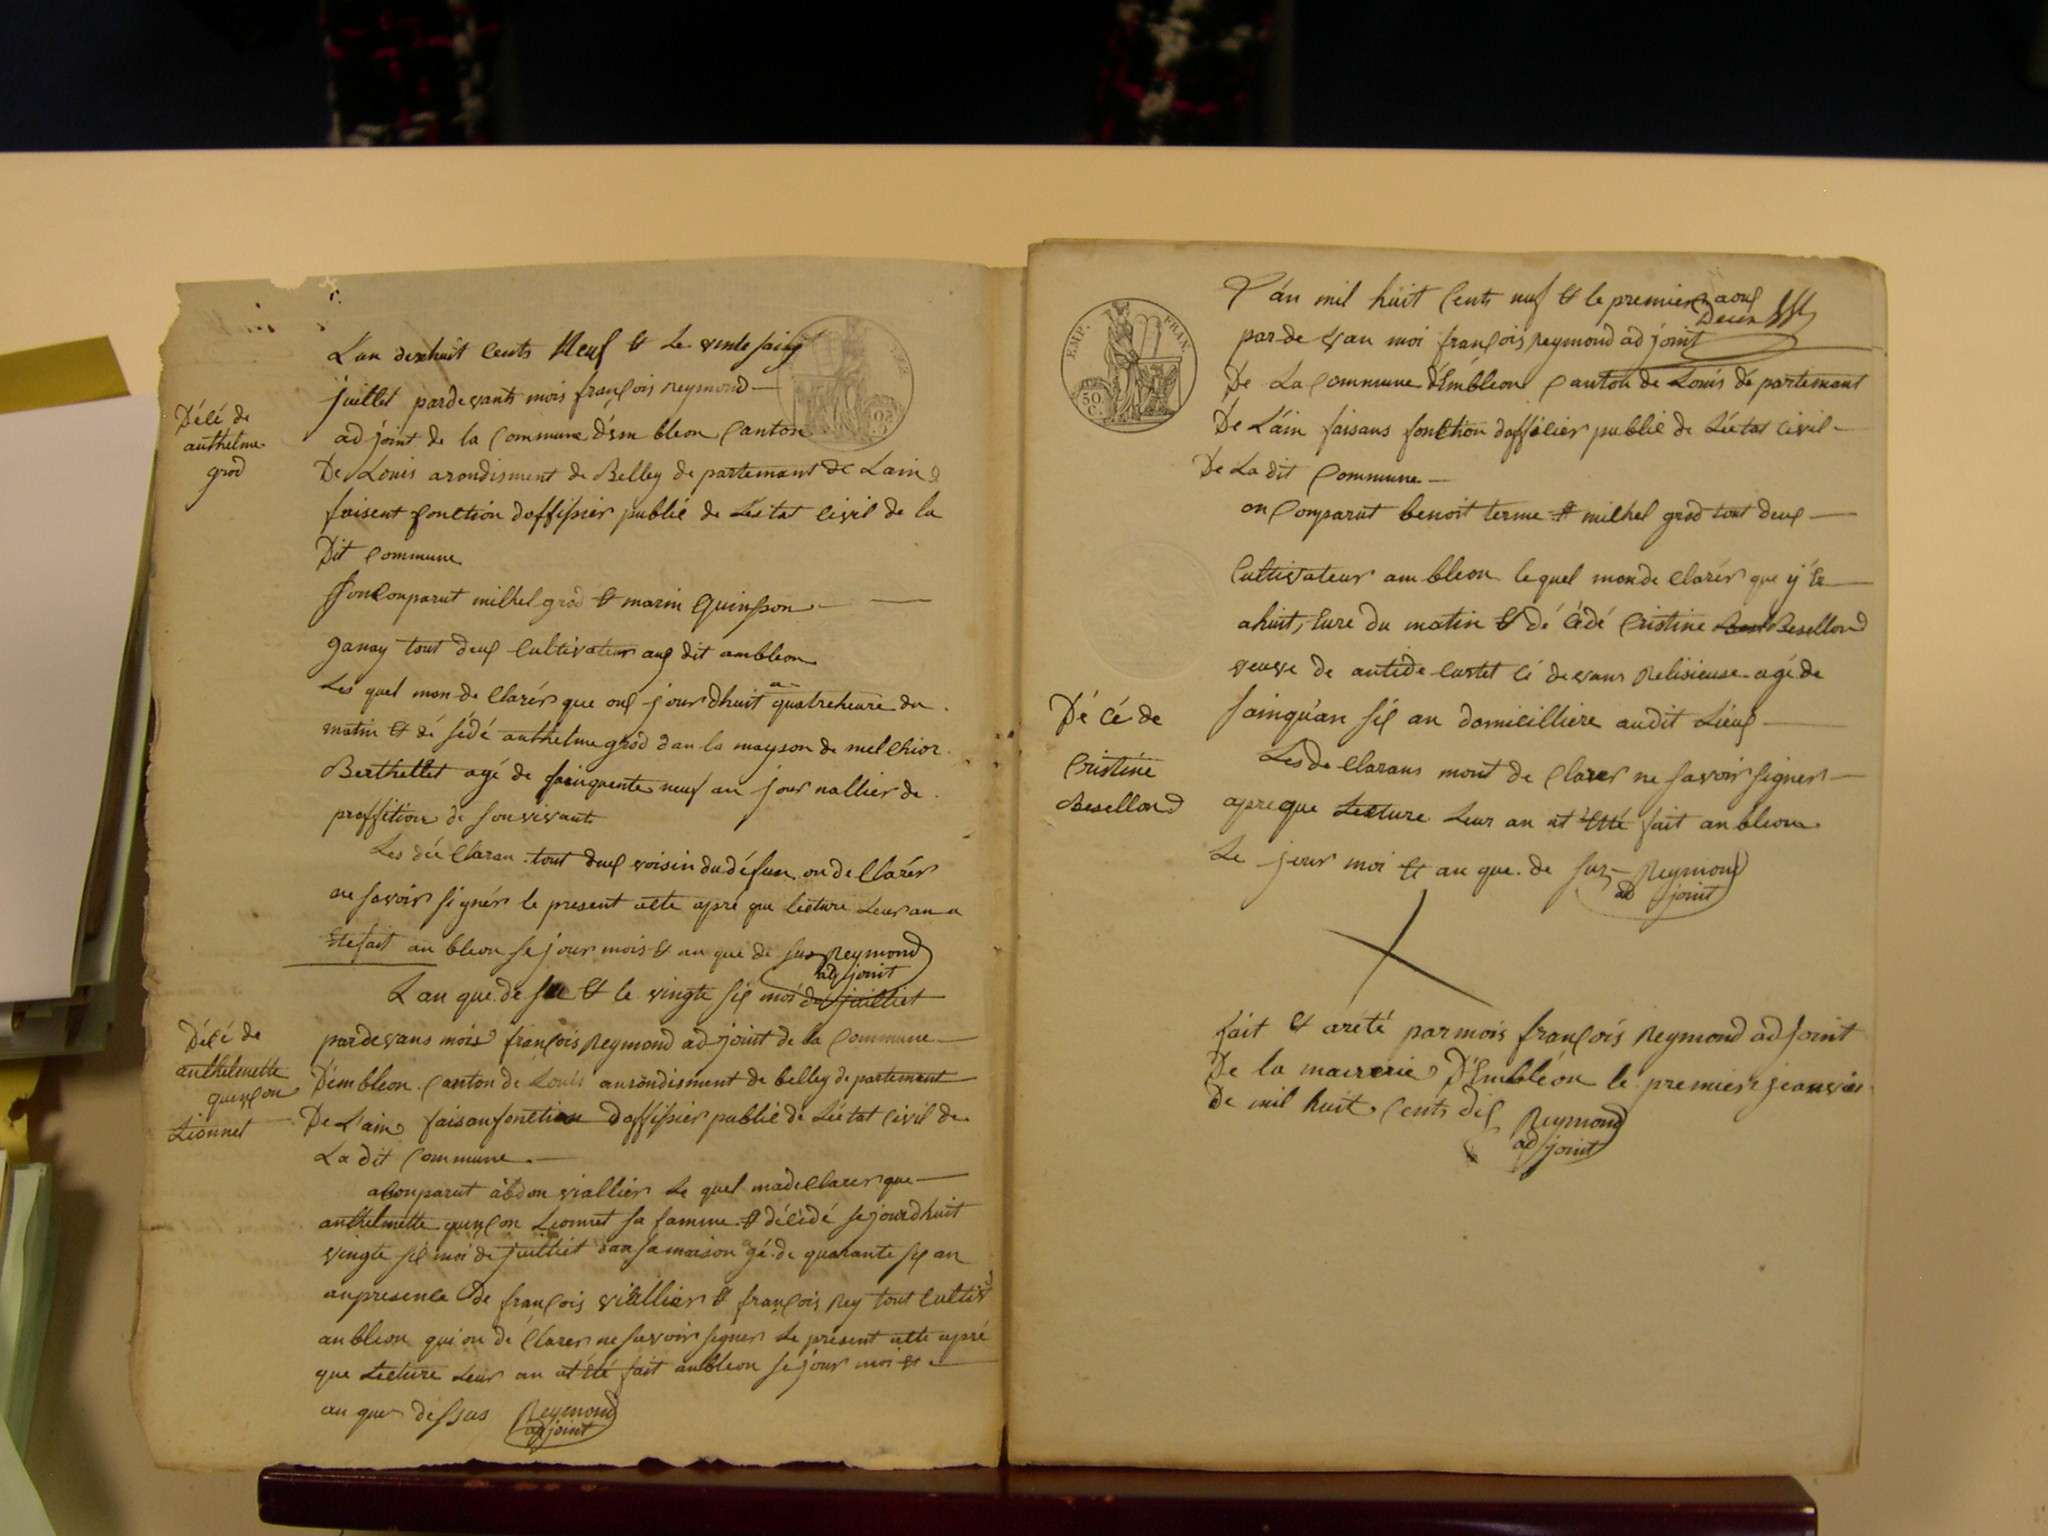 L'an dixhuit Cents Neuf & Le vinte sainq
juillet pardevants mois françois reymond
adjoint de la Commune d'ém bleon Canton
De Louis arondisment de Belley de partemant de Lain
faisent fonction d'offissier publié de L'ée tat Civil de la
Dit Commune
Décé de
authelme
grod
on Conparut milhel grod & marin Quinsson
ganay tout deux Cultivateur aux dit ambleon
Les quel mon de Clarér que ouj jourdhuit a quatreheure du
matin & dé sédé anthelme grod dan la mayson de melChior
Berthellet agé de sainquente neuf an journallier de
proffition de sonvivant
Les dée Claran tout deux voisin du défun on de Clarér
ne savoir signér le present atte apré que lecture Leur an a
été fait an bleon se jour mois & an que de sus Reymond
adjoint
L'an que de sus & le vingte six moi de juilliet
pardevans mois françois Reymond adjoint de la Commune
D'émbleon Canton de Louis aurondisment de belley de partement
De L'ain faisan fonction d'offissier publié de L'ée tat Civil de
La dit Commune
Décé de
anthelmette
quinçon
Lionnet
a Conparut abdon viallier Le quel ma de Clarer que
anthelmette quinçon Lionnet sa famme & décédé se jourdhuit
vingte six moi de juilliet dan sa maison agé de quarante six an
anpresence de françois viallier & françois Rey tout Cultiv
anbleon qui on de Clarer ne savoir signer Le présent atte apré
que Lecture Leur an at été fait anbleon se jour moi &
an que dessus Reymond
adjoint
EMP. FRAN.
50
C.
L'an mil huit Cents neuf & le premier aous
par de van moi françois reymond adjoint
De La Commune d'Émbleon Canton de Louis dé partemant
De L'ain faisans fonction d'offécier publié de L'ée tat Civil
De La dit Commune
on Conparut benoit terme & milhel grod tout deux
Cultivateur ambleon lequel mon de Clarér que y'ér
a huit, eure du matin & dé cédé Cristine Besellond
veuve de antide Curtet Ci devans Relisieuse agé de
sainqu'an six an domicillière audit Lieux
Décé de
Cristine
Besellond
Les de Clarans mont de Clarer ne savoir signer
apreque Lecture Leur an at été fait anbleon
Le jour moi & an que de sus Reymond
adjoint
fait & arété parmois françois Reymond adjoint
De la mairerie D'Embléon le premier jeanvier
De mil huit Cents dix Reymond
adjoint